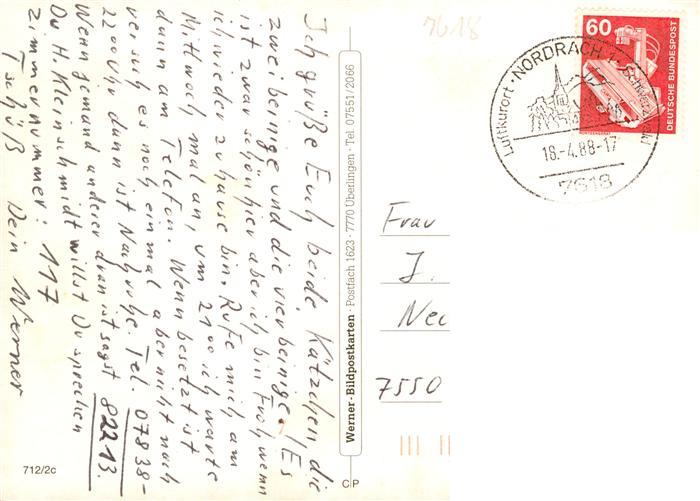 Ich grüße Euch beide Kätzchen die
zweibeinige und die vierbeinige. Es
ist zwar schön hier aber ich bin froh wenn
ich wieder zuhause bin. Rufe mich am
Mittwoch mal an, um 2100 ich warte
dann am Telefon. Wenn besetzt ist
versuch es noch einmal aber nicht nach
2200 Uhr dann ist Nachruhe. Tel. 07838-
82213.
Wenn jemand anderer dran ist sagst
Du H. Kleinschmidt willst Du sprechen
Zimmernummer: 117
Tschüß Dein Werner
712/2c
Werner-Bildpostkarten · Postfach 1623 · 7770 Überlingen · Tel. 07551/2066
C P
7618
60
DEUTSCHE BUNDESPOST
Luftkurort · NORDRACH i. Schwarzwald
18.-4.88-17
7618
Frau
J.
Nei
7550